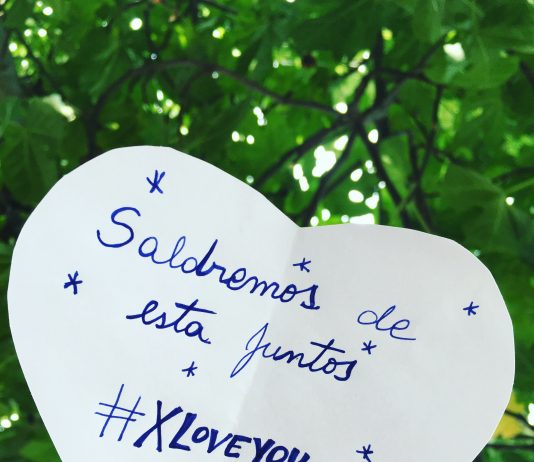 Saldremos de
esta juntos
#XLOVEYOU